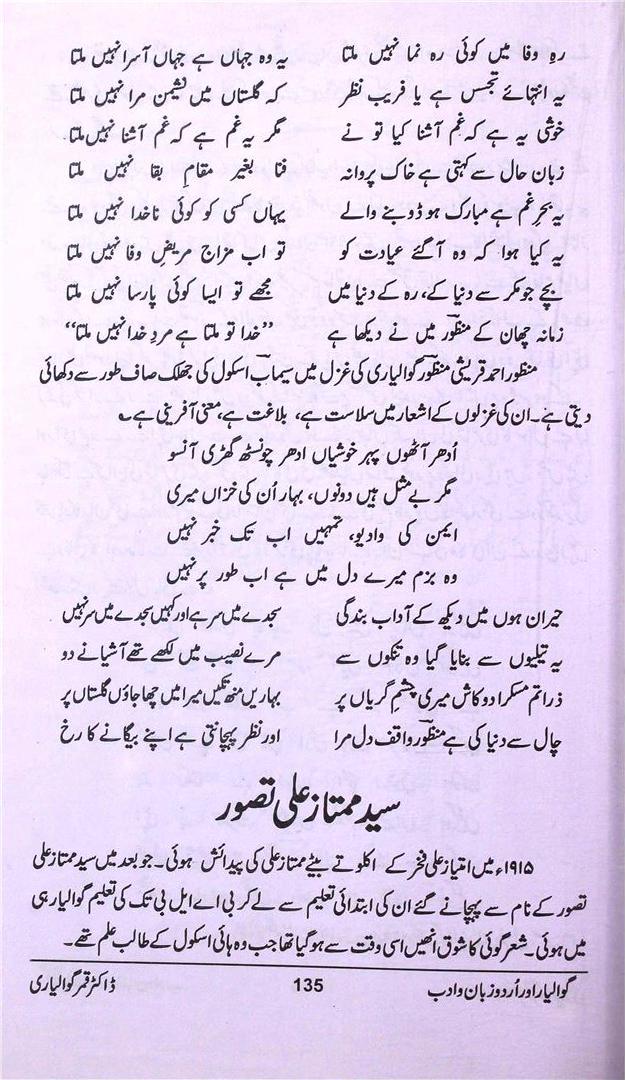 رہِ وفا میں کوئی رہ نما نہیں ملتا یہ وہ جہاں ہے جہاں آسرا نہیں ملتا
یہ انتہائے تجسس ہے یا فریب نظر کہ گلستاں میں نشیمن مرا نہیں ملتا
خوشی یہ ہے کہ غمِ آشنا کیا تو نے مگر یہ غم ہے کہ غم آشنا نہیں ملتا
زبان حال سے کہتی ہے خاک پروانہ فنا بغیر مقامِ بقا نہیں ملتا
یہ بحرِ غم ہے مبارک ہو ڈوبنے والے یہاں کسی کو کوئی ناخدا نہیں ملتا
یہ کیا ہوا کہ وہ آگئے عیادت کو تو اب مزاج مریضِ وفا نہیں ملتا
بچے جو مکر سے دنیا کے، رہ کے دنیا میں مجھے تو ایسا کوئی پارسا نہیں ملتا
زمانہ چھان کے منظورؔ میں نے دیکھا ہے ”خدا تو ملتا ہے مردِ خدا نہیں ملتا“
منظور احمد قریشی منظورؔ گوالیاری کی غزل میں سیماب اسکول کی جھلک صاف طور سے دکھائی
دیتی ہے۔ ان کی غزلوں کے اشعار میں سلاست ہے، بلاغت ہے، معنی آفرینی ہے۔
اُدھر آٹھوں پہر خوشیاں ادھر چونسٹھ گھڑی آنسو
مگر بے مثل ہیں دونوں، بہار اُن کی خزاں میری
ایمن کی وادیو، تمہیں اب تک خبر نہیں
وہ بزم میرے دل میں ہے اب طور پر نہیں
حیران ہوں میں دیکھ کے آداب بندگی سجدے میں سر ہے اور کہیں سجدے میں سر نہیں
یہ تیلیوں سے بنایا گیا وہ تنکوں سے مرے نصیب میں لکھے تھے آشیانے دو
ذرا تم مسکرا دو کاش میری چشمِ گریاں پر بہاریں منھ تکیں میرا میں چھا جاؤں گلستاں پر
چال سے دنیا کی ہے منظورؔ واقف دل مرا اور نظر پہچانتی ہے اپنے بیگانے کا رخ
سید ممتاز علی تصور
۱۹۱۵ء میں امتیاز علی فخر کے اکلوتے بیٹے ممتاز علی کی پیدائش ہوئی۔ جو بعد میں سید ممتاز علی
تصور کے نام سے پہچانے گئے ان کی ابتدائی تعلیم سے لے کر بی اے ایل بی تک کی تعلیم گوالیار ہی
میں ہوئی۔ شعر گوئی کا شوق انھیں اسی وقت سے ہوگیا تھا جب وہ ہائی اسکول کے طالب علم تھے۔
گوالیار اور اُردو زبان و ادب 135 ڈاکٹر قمر گوالیاری